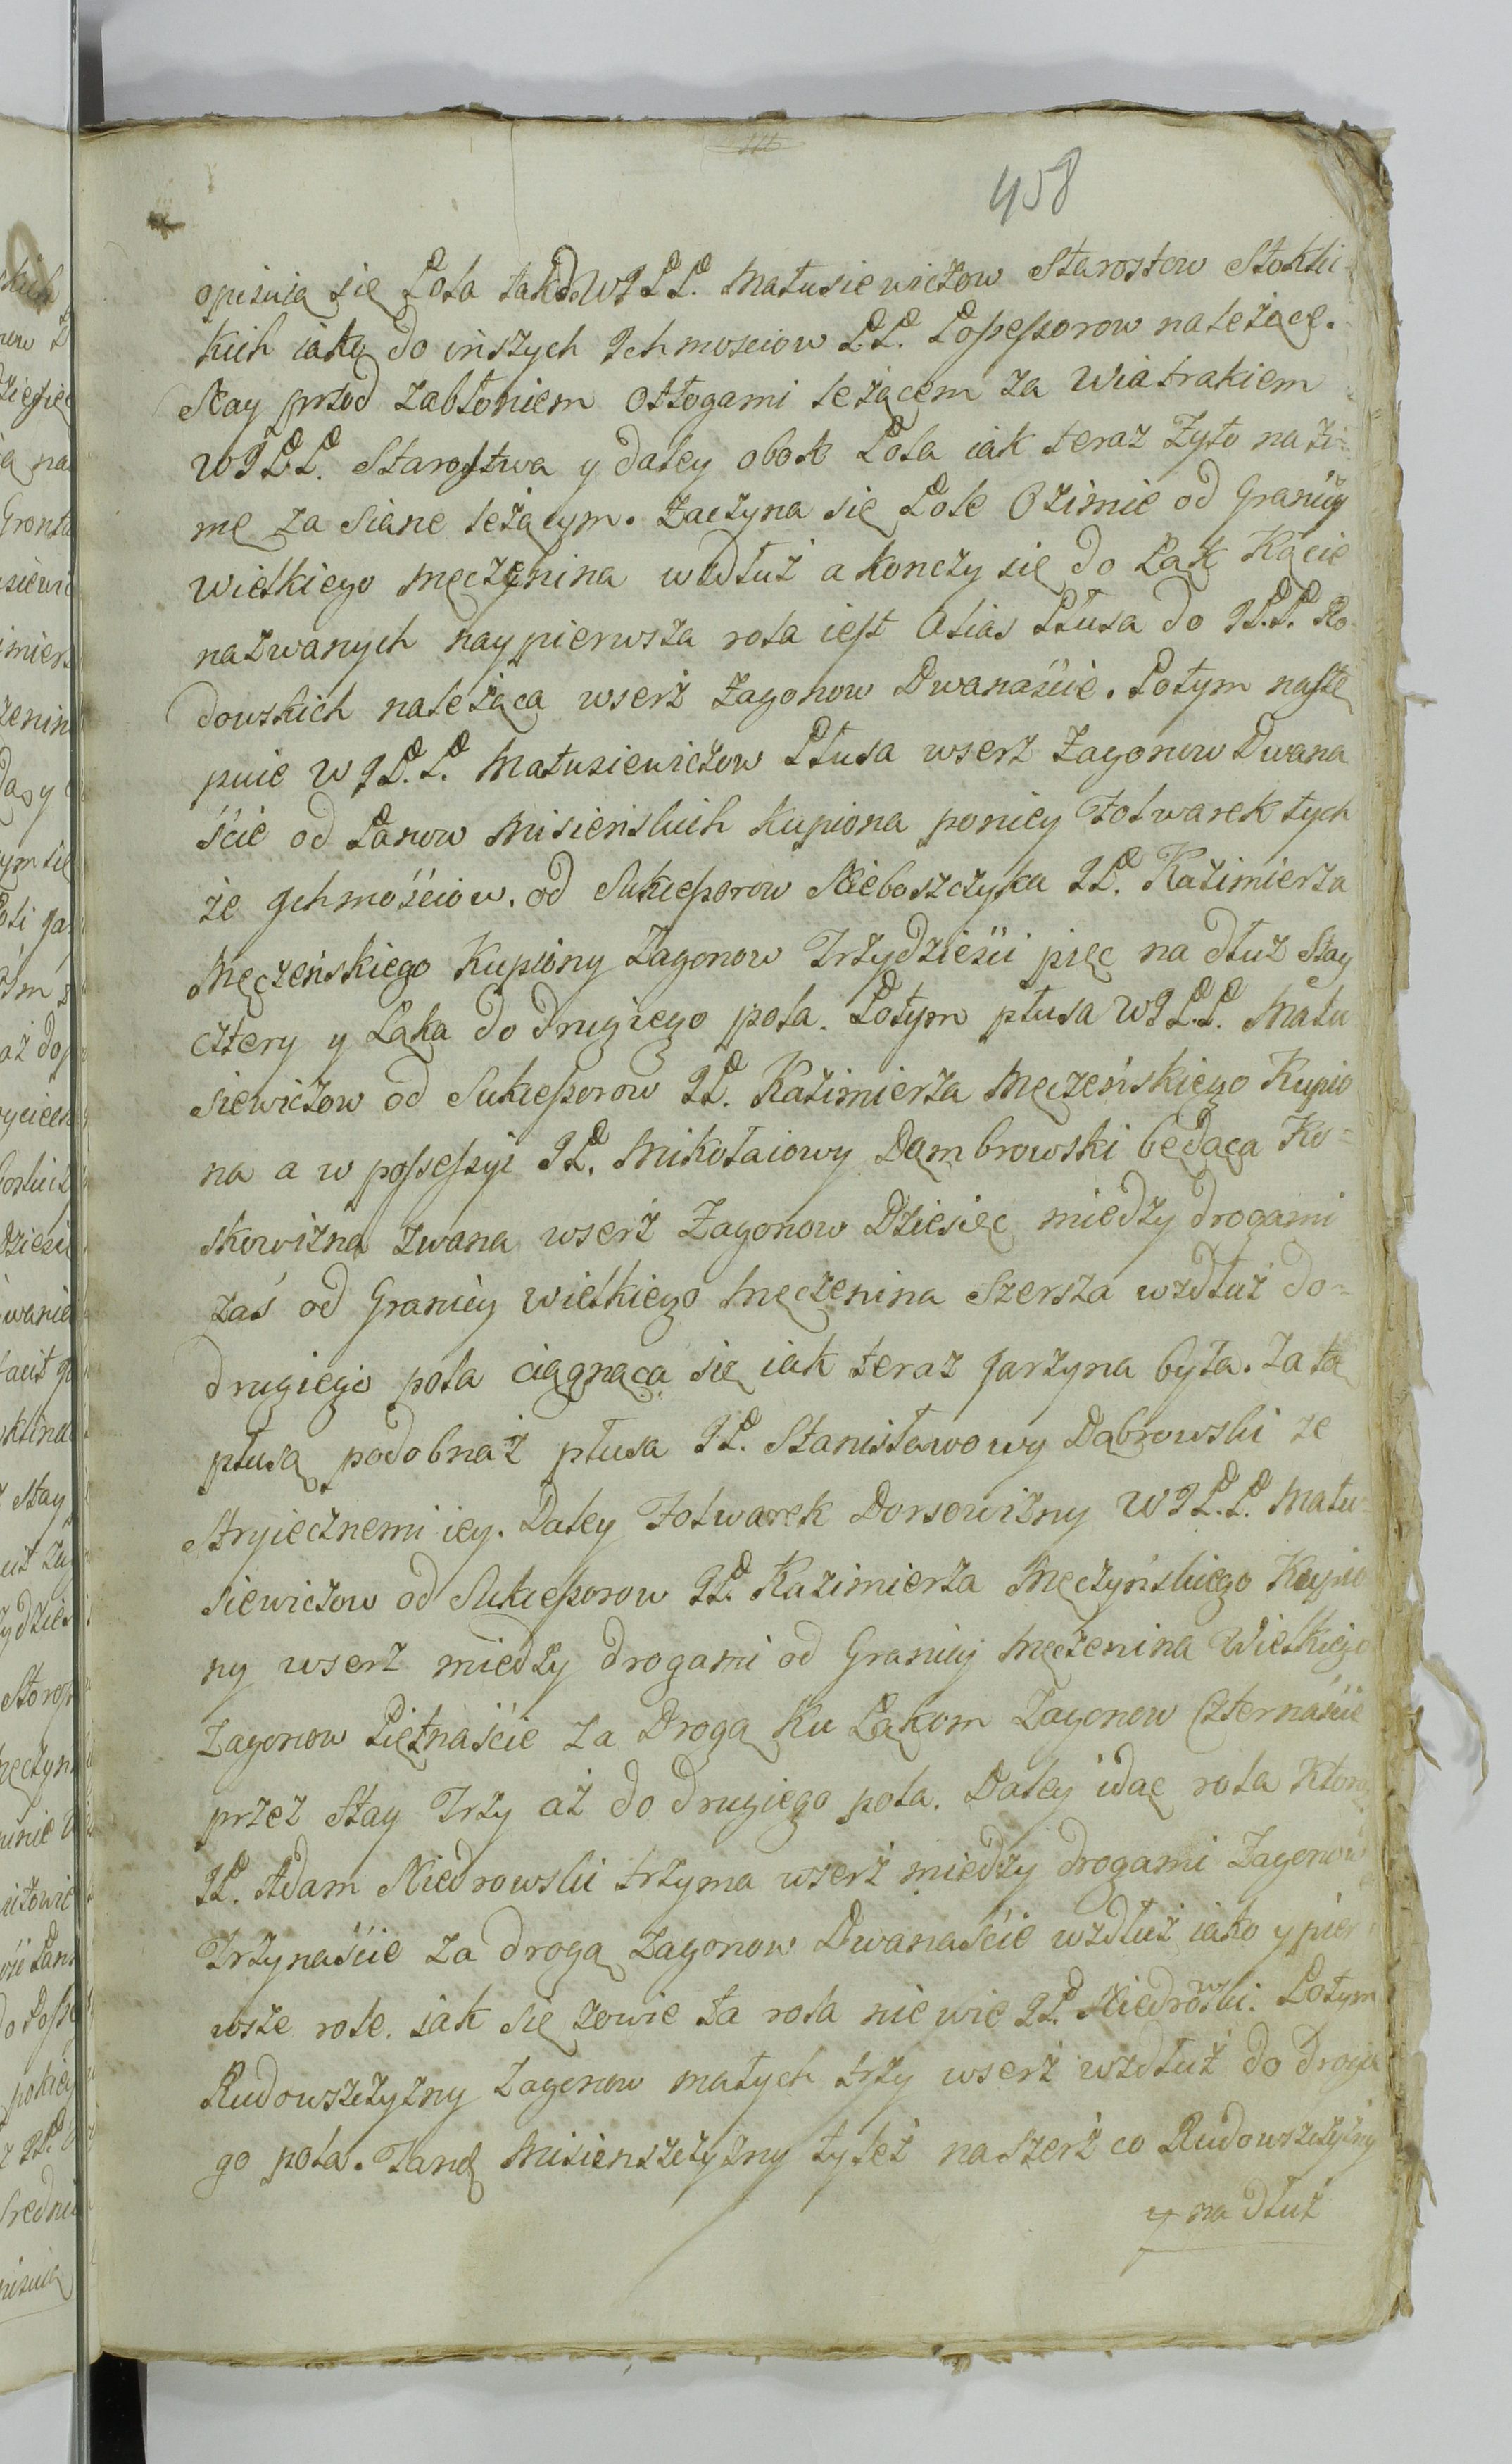 458
opisuią się Pola tak do WJPP. Matusiewiczow Starostow Stokli-
kich iako do inszych Ichmosciow PP. Possessorow należące.
Nay przod Zabłoniem Odłogami leżącem za Wiatrakiem
WJPP. Starostwa y daley obok Pola iak teraz Zyto na zi-
mę za Siane leżącym. Zaczyna się Pole Ozimie od Granicy
Wielkiego Męczenina wzdłuż a konczy się do Łąk Kącie
nazwanych naypierwsza rola iest Alias Płusa do JPP. Ro-
dowskich należąca wserż Zagonow Dwanaście. Potym nastę
puie WJP.P. Matusiewiczow Płusa wserz Zagonow Dwana
ście od Panow Misieńskich kupiona poniey Folwarek tych
że Ichmościow. od Sukcessorow Nieboszczyka JP. Kazimierza
Męczeńskiego Kupiony Zagonow Trzydzieści pięc na dłuż Stay
cztery y Łąka do drugiego pola. Potym płusa WJP.P. Matu
siewiczow od Sukcessorow JP. Kazimierza Męczeńskiego Kupio
na a w possessyi JP. Mikołaiowy Dąmbrowski będąca Ko-
skowizna zwana wserż Zagonow Dziesięc między drogami
zaś od Granicy wielkiego Męczenina Szersza wzdłuż do-
drugiego pola ciągnąca się iak teraz Jarzyna była. Za tą
płusą podobnaż płusa JP. Stanisławowy Dąbrowski ze
Stryiecznemi iey. Daley Folwarek Dorsowizny WJP.P. Matu-
siewiczow od Sukcessorow JP. Kazimierza Męczyńskiego Kupio
ny wserz między drogami od Granicy Męczenina Wielkiego
Zagonow Piętnaście za Drogą Ku Łąkom Zagonow Czternaście
przez Stay Trzy aż do drugiego pola. Daley idąc rola ktorą
JP. Adam Niedrowski trzyma wserż między drogami Zagonow
Trzynaście za drogą Zagonow Dwanaście wzdłuż iako y pier-
wsze role. iak się zowie ta rola nie wie JP. Niedrowski. Potym
Rudowszczyzny Zagonow małych trzy wserż wzdłuż do drogie
go pola. Tandę Misienszczyzny tyleż na szerż co Rudowszczyzny
y na dłuż